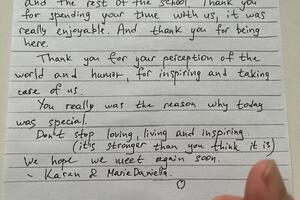 and the rest of the school. Thank you
for spending your time with us, it was
really enjoyable. And thank you for being
here.
Thank you for your perception of the
world and humor, for inspiring and taking
care of us.
You really was the reason why today
was special.
Don't stop loving, living and inspiring
(it's stronger than you think it is)
We hope we meet again soon.
~ Karen & Marie Daniella.